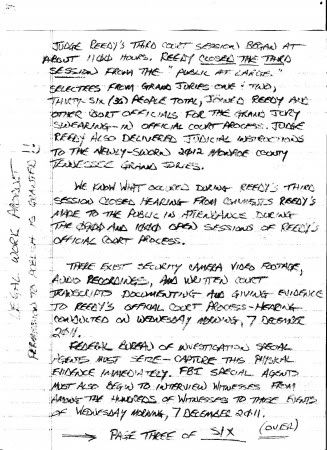 JUDGE REEDY'S THIRD COURT SESSION BEGAN AT
ABOUT 1100 HOURS. REEDY CLOSED THE THIRD
SESSION FROM THE "PUBLIC AT LARGE."
SELECTEES FROM GRAND JURIES ONE & TWO,
THIRTY-SIX (36) PEOPLE TOTAL, JOINED REEDY AND
OTHER COURT OFFICIALS FOR THE GRAND JURY
SWEARING-IN OFFICIAL COURT PROCESS. JUDGE
REEDY ALSO DELIVERED JUDICIAL INSTRUCTIONS
TO THE NEWLY-SWORN 2012 MONROE COUNTY
TENNESSEE GRAND JURIES.
WE KNOW WHAT OCCURED DURING REEDY'S THIRD
SESSION CLOSED HEARING FROM COMMENTS REEDY'S
MADE TO THE PUBLIC IN ATTENDANCE DURING
THE 0900 AND 1000 OPEN SESSIONS OF REEDY'S
OFFICIAL COURT PROCESS.
THERE EXIST SECURITY CAMERA VIDEO FOOTAGE,
AUDIO RECORDINGS, AND WRITTEN COURT
TRANSCRIPTS DOCUMENTING AND GIVING EVIDENCE
TO REEDY'S OFFICIAL COURT PROCESS-HEARING
CONDUCTED ON WEDNESDAY MORNING, 7 DECEMBER
2011.
FEDERAL BUREAU OF INVESTIGATION SPECIAL
AGENTS MUST SEIZE-CAPTURE THIS PHYSICAL
EVIDENCE IMMEDIATELY. FBI SPECIAL AGENTS
MUST ALSO BEGIN TO INTERVIEW WITNESSES FROM
AMONG THE HUNDREDS OF WITNESSES TO THESE EVENTS
OF WEDNESDAY MORNING, 7 DECEMBER 2011.
PAGE THREE OF SIX (OVER)
LEGAL WORK PRODUCT
PERMISSION TO PUBLISH IS GRANTED!!